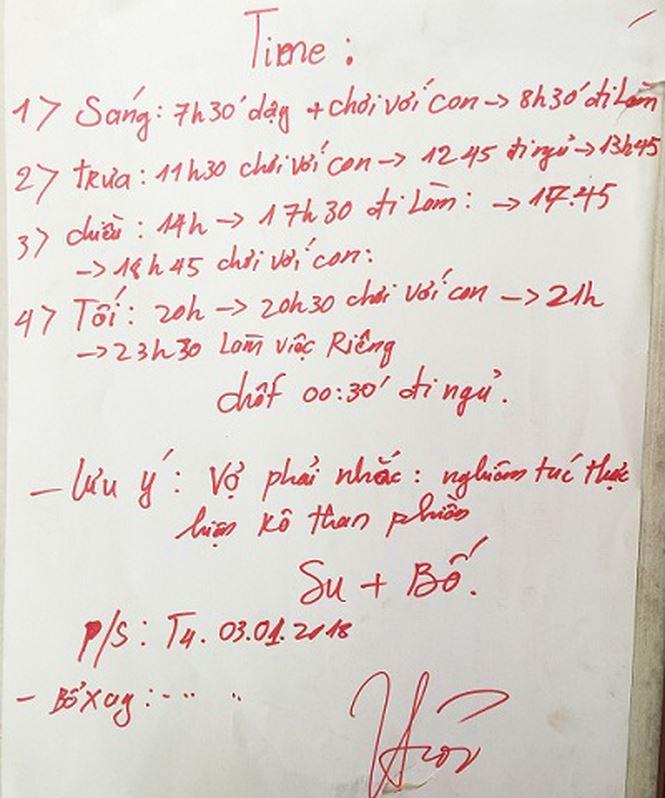 Time:
1> Sáng: 7h30' dậy + chơi với con → 8h30' đi làm
2> trưa: 11h30 chơi với con → 12 45 đi ngủ → 13h45
3> chiều: 14h → 17h30 đi Làm: → 17.45
→ 18h45 chơi với con:
4> Tối: 20h → 20h30 chơi với con → 21h
→ 23h30 Làm việc Riêng
chốt 00:30' đi ngủ.
- lưu ý: Vợ phải nhắc: nghiêm túc thực
hiện kô than phiền
Su + Bố.
P/S: T4. 03.01.2018
- Bổ xay: -.. ..